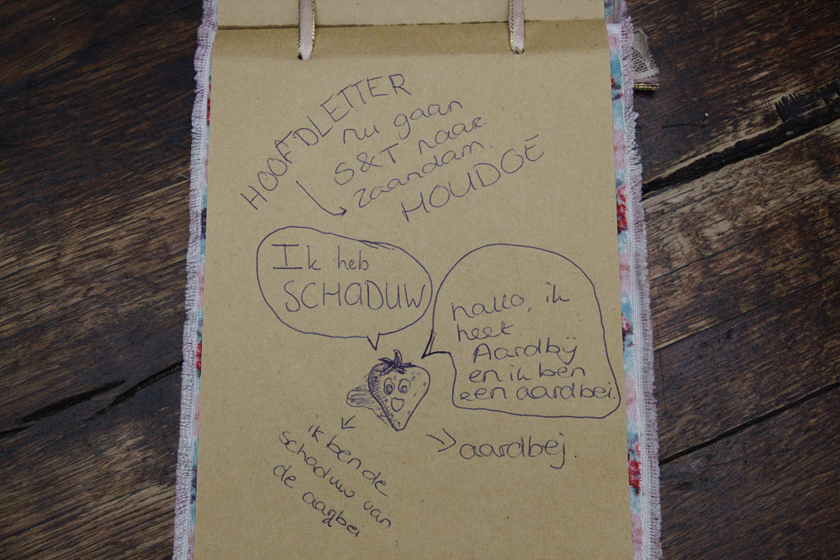 HOOFDLETTER
nu gaan
S&T naar
zaandam.
HOUDOE
Ik heb
SCHADUW
hallo, ik
heet
Aardbij
en ik ben
een aardbei.
aardbej.
ik ben de
schaduw van
de aardbei